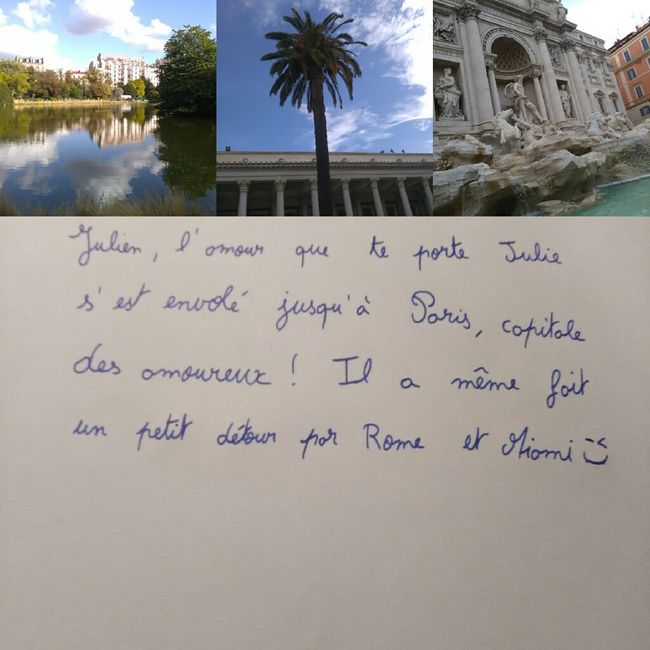 Julien, l'amour que te porte Julie
s'est envolé jusqu'à Paris, capitale
des amoureux ! Il a même fait
un petit détour par Rome et Miami :)